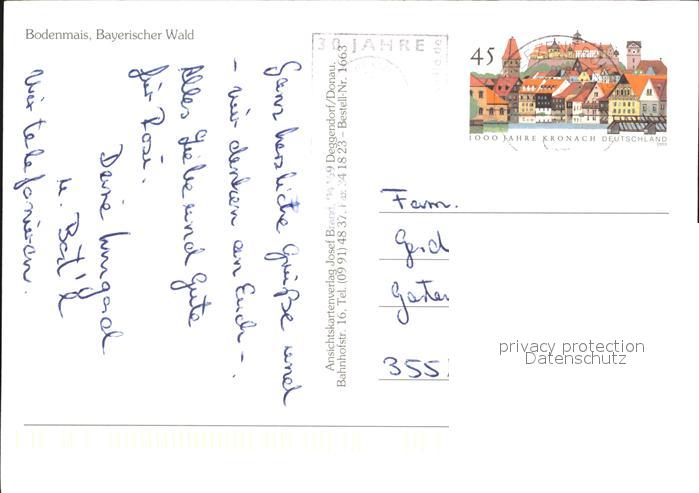 Bodenmais, Bayerischer Wald
Ganz herzliche Grüße und
- wir denken an Euch -.
Alles Liebe und Gute
für Rosi.
Deine Irmgard
u.
Wir telefonieren.
30 JAHRE
Ansichtskartenverlag Josef Deggendorf/Donau,
Bahnhofstr. 16, Tel. (09 91) 48 37, 34 18 23 – Bestell-Nr. 1663
45
1000 JAHRE KRONACH DEUTSCHLAND
Fam.
Gerd
355
privacy protection
Datenschutz